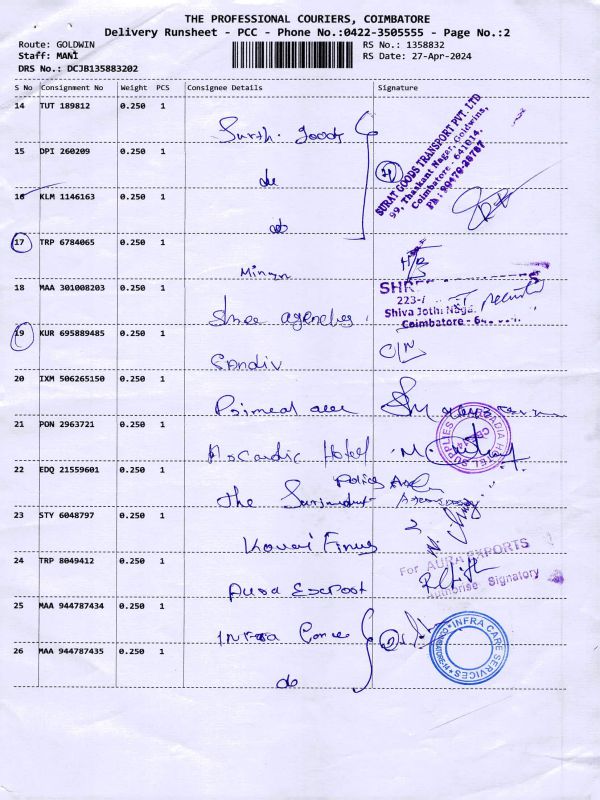 THE PROFESSIONAL COURIERS, COIMBATORE
Delivery Runsheet - PCC - Phone No.:0422-3505555 - Page No.:2
Route: GOLDWIN
RS No.: 1358832
Staff: MANI
RS Date: 27-Apr-2024
DRS No.: DCJB135883202
S No Consignment No Weight PCS Consignee Details Signature
14 TUT 189812 0.250 1
Surth. goods
SURAT GOODS TRANSPORT PVT. LTD
99, Thaskant Nagar, Goldwins,
Coimbatore - 641014.
Ph : 90479-28787
15 DPI 260209 0.250 1
do
16 KLM 1146163 0.250 1
do
17 TRP 6784065 0.250 1
18 MAA 301008203 0.250 1
Shree agencies
SHR
223-
Shiva Jothi Naga
Coimbatore - 64
19 KUR 695889485 0.250 1
C/N
Sandiv
20 IXM 506265150 0.250 1
21 PON 2963721 0.250 1
Hotel
HOTEL SUPPLIES
22 EDQ 21559601 0.250 1
the
23 STY 6048797 0.250 1
Kovai
24 TRP 8049412 0.250 1
Aura Export
For AURA EXPORTS
Authorise Signatory
25 MAA 944787434 0.250 1
Infra Care
INFRA CARE SERVICES
COIMBATORE
26 MAA 944787435 0.250 1
do